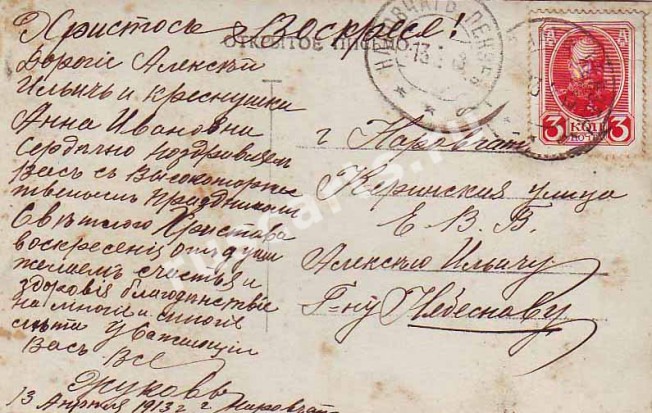 Христосъ Воскресе!
ОТКРЫТОЕ ПИСЬМО.
Дорогіе Алексѣй
Ильичъ и креснушки
Анна Ивановна
Сердечно поздравляем
Васъ съ Высокоторже
твеннымъ праздникомъ
Свѣтлого Христова
воскресенія отъ души
желаемъ счастья и
здоровія благоденствіе
на многіе и многіе
лѣта уважающіи
Васъ Все
Жуковы
13 Апреля 1913 г г Наровчатъ
г Наровчатъ
Керинская улица
Е. В. Б.
Алексѣю Ильичу
Г-ну Небеснову
НАРОВЧАТЪ ПЕНЗ
13
3 КОП 3
ruscards.ru